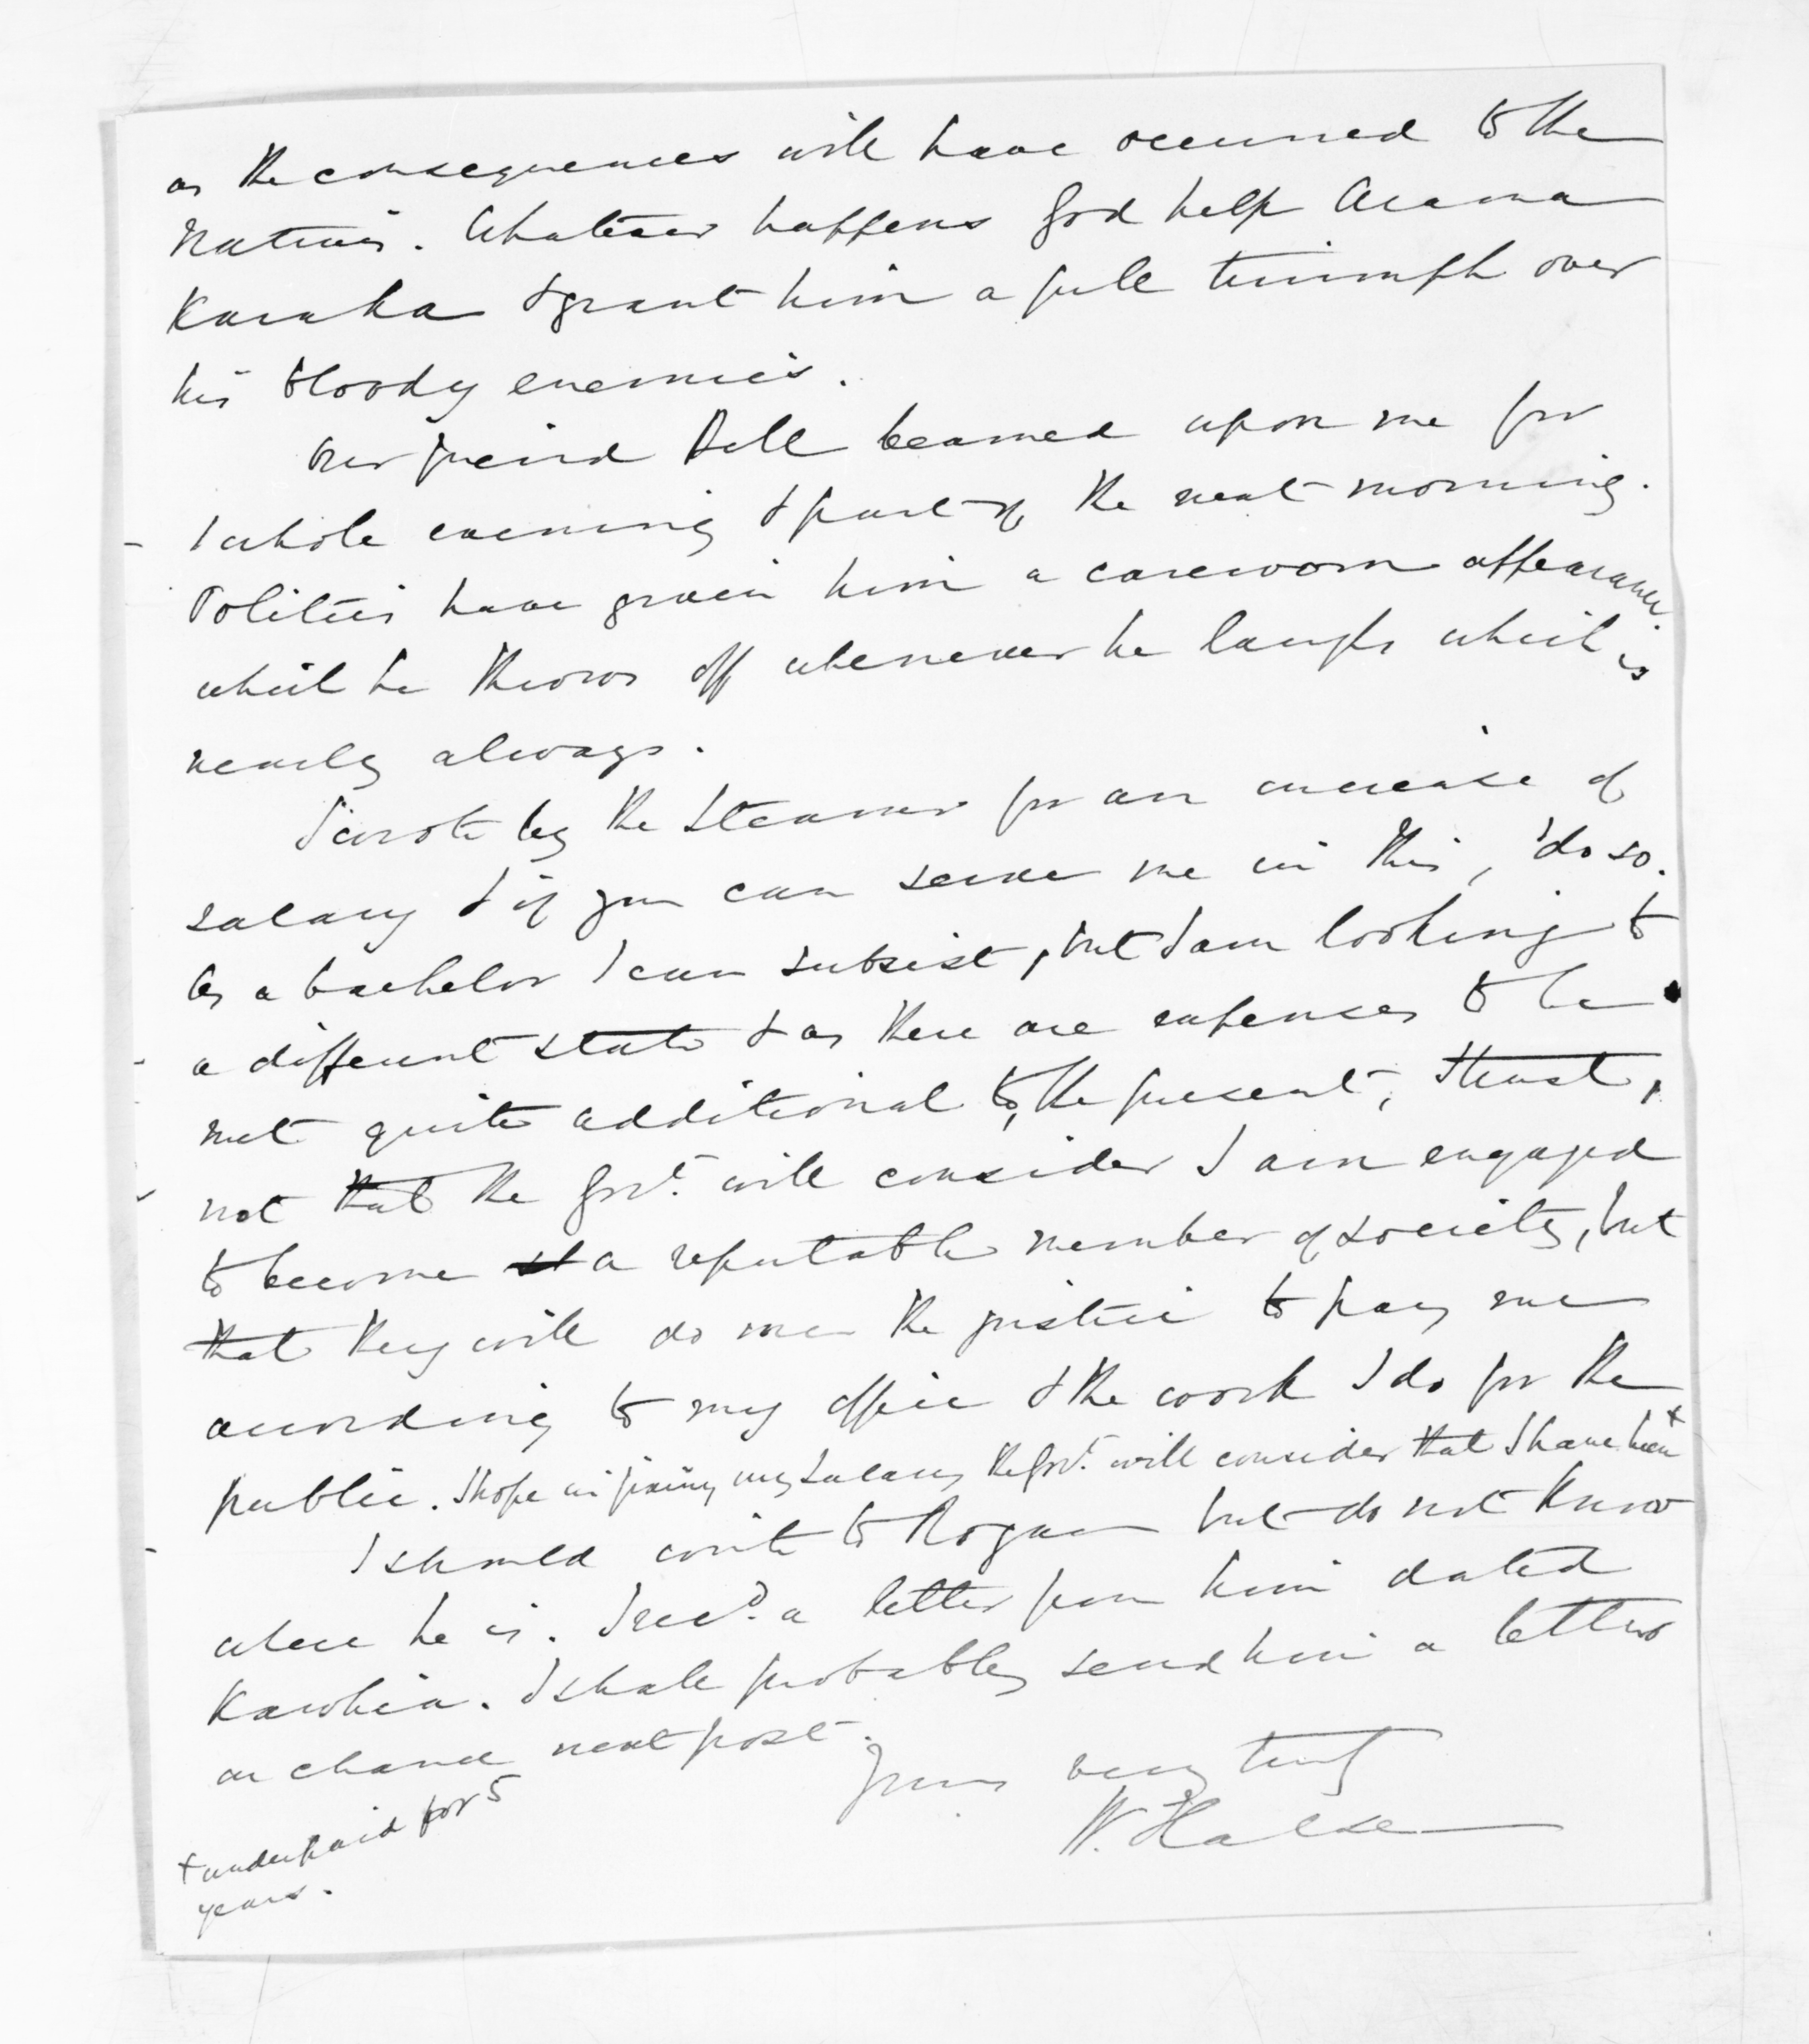 as the consequences will have occurred to the
Natives. Whatever happens God help Arama
Karaka & grant him a full triumph over
his bloody enemies.
Our friend Bell beamed upon me for
1 whole evening & part of the next morning.
Politics have given him a careworn appearance.
which he throws off whenever he laughs which is
nearly always.
I wrote by the Steamer for an increase of
salary & if you can serve me in this, do so.
As a bachelor I can subsist, but I am looking to
a different state & as there are expenses to be
met quite additional to the present, I trust,
not that the Govt. will consider I am engaged
to become a reputable member of society, but
that they will do me the justice to pay me
according to my office & the work I do for the
public. I hope in fixing my salary the Govt. will consider that I have been +
I should write to Rogan but do not know
where he is. I recd. a letter from him dated
Kawhia. I shall probably send him a letter
on chance next post.
Yours very truly
W. Halse
+ underpaid for 5
years.